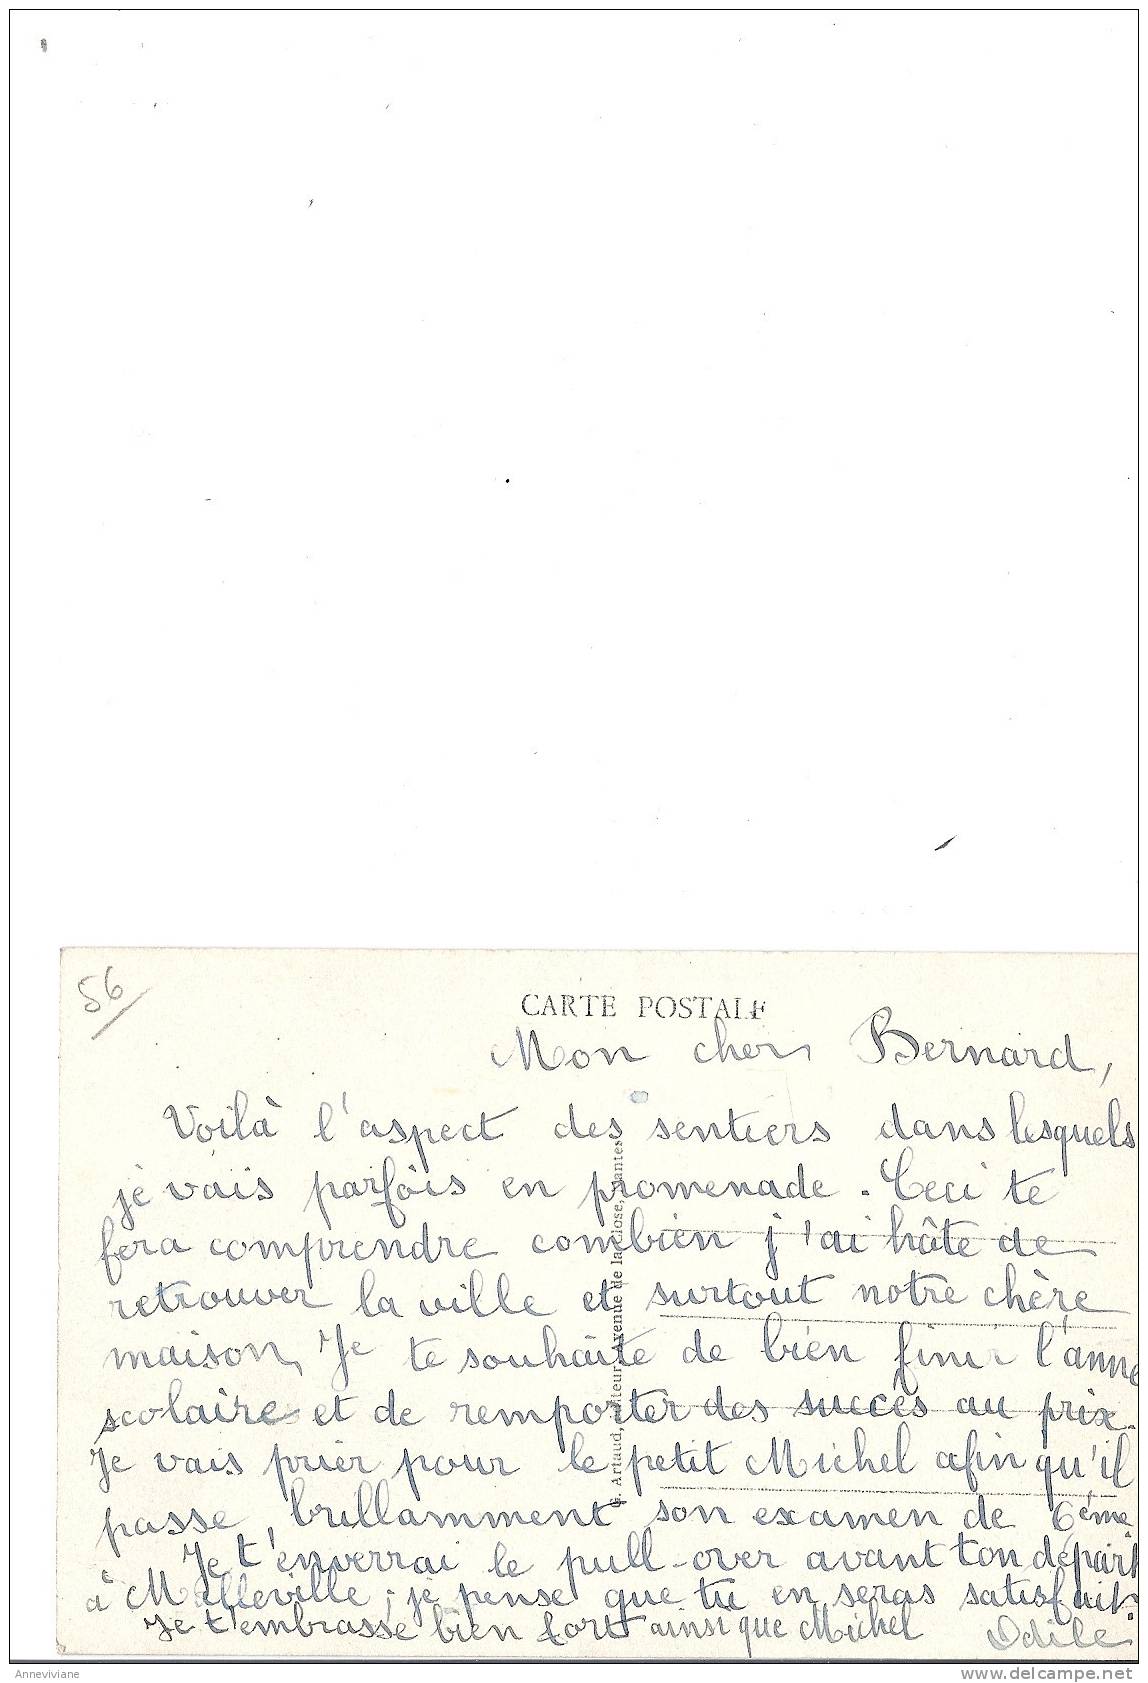 56
CARTE POSTALE
Mon cher Bernard,
Voilà l'aspect des sentiers dans lesquels
je vais parfois en promenade. Ceci te
fera comprendre combien j'ai hâte de
retrouver la ville et surtout notre chère
maison. Je te souhaite de bien finir l'anne
scolaire et de remporter des succès au prix.
Je vais prier pour le petit Michel afin qu'il
passe brillamment son examen de 6ème
Je t'enverrai le pull-over avant ton départ
à Malleville ; je pense que tu en seras satisfait.
Je t'embrasse bien fort ainsi que Michel Odile
G. Artaud, éditeur, Avenue de la Close, Nantes
Anneviviane
www.delcampe.net